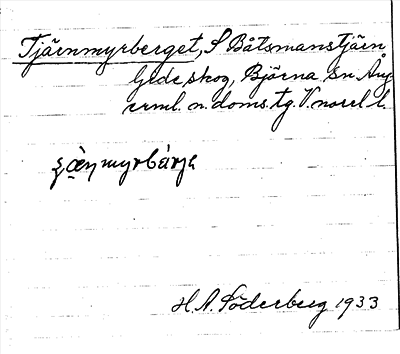 Tjärnmyrberget, S Båtsmanstjärn
Gideskog, Björna sn Ång
erml. n. doms. tg. V. norrl l.
myrbárjɛ
H. A. Söderberg 1933